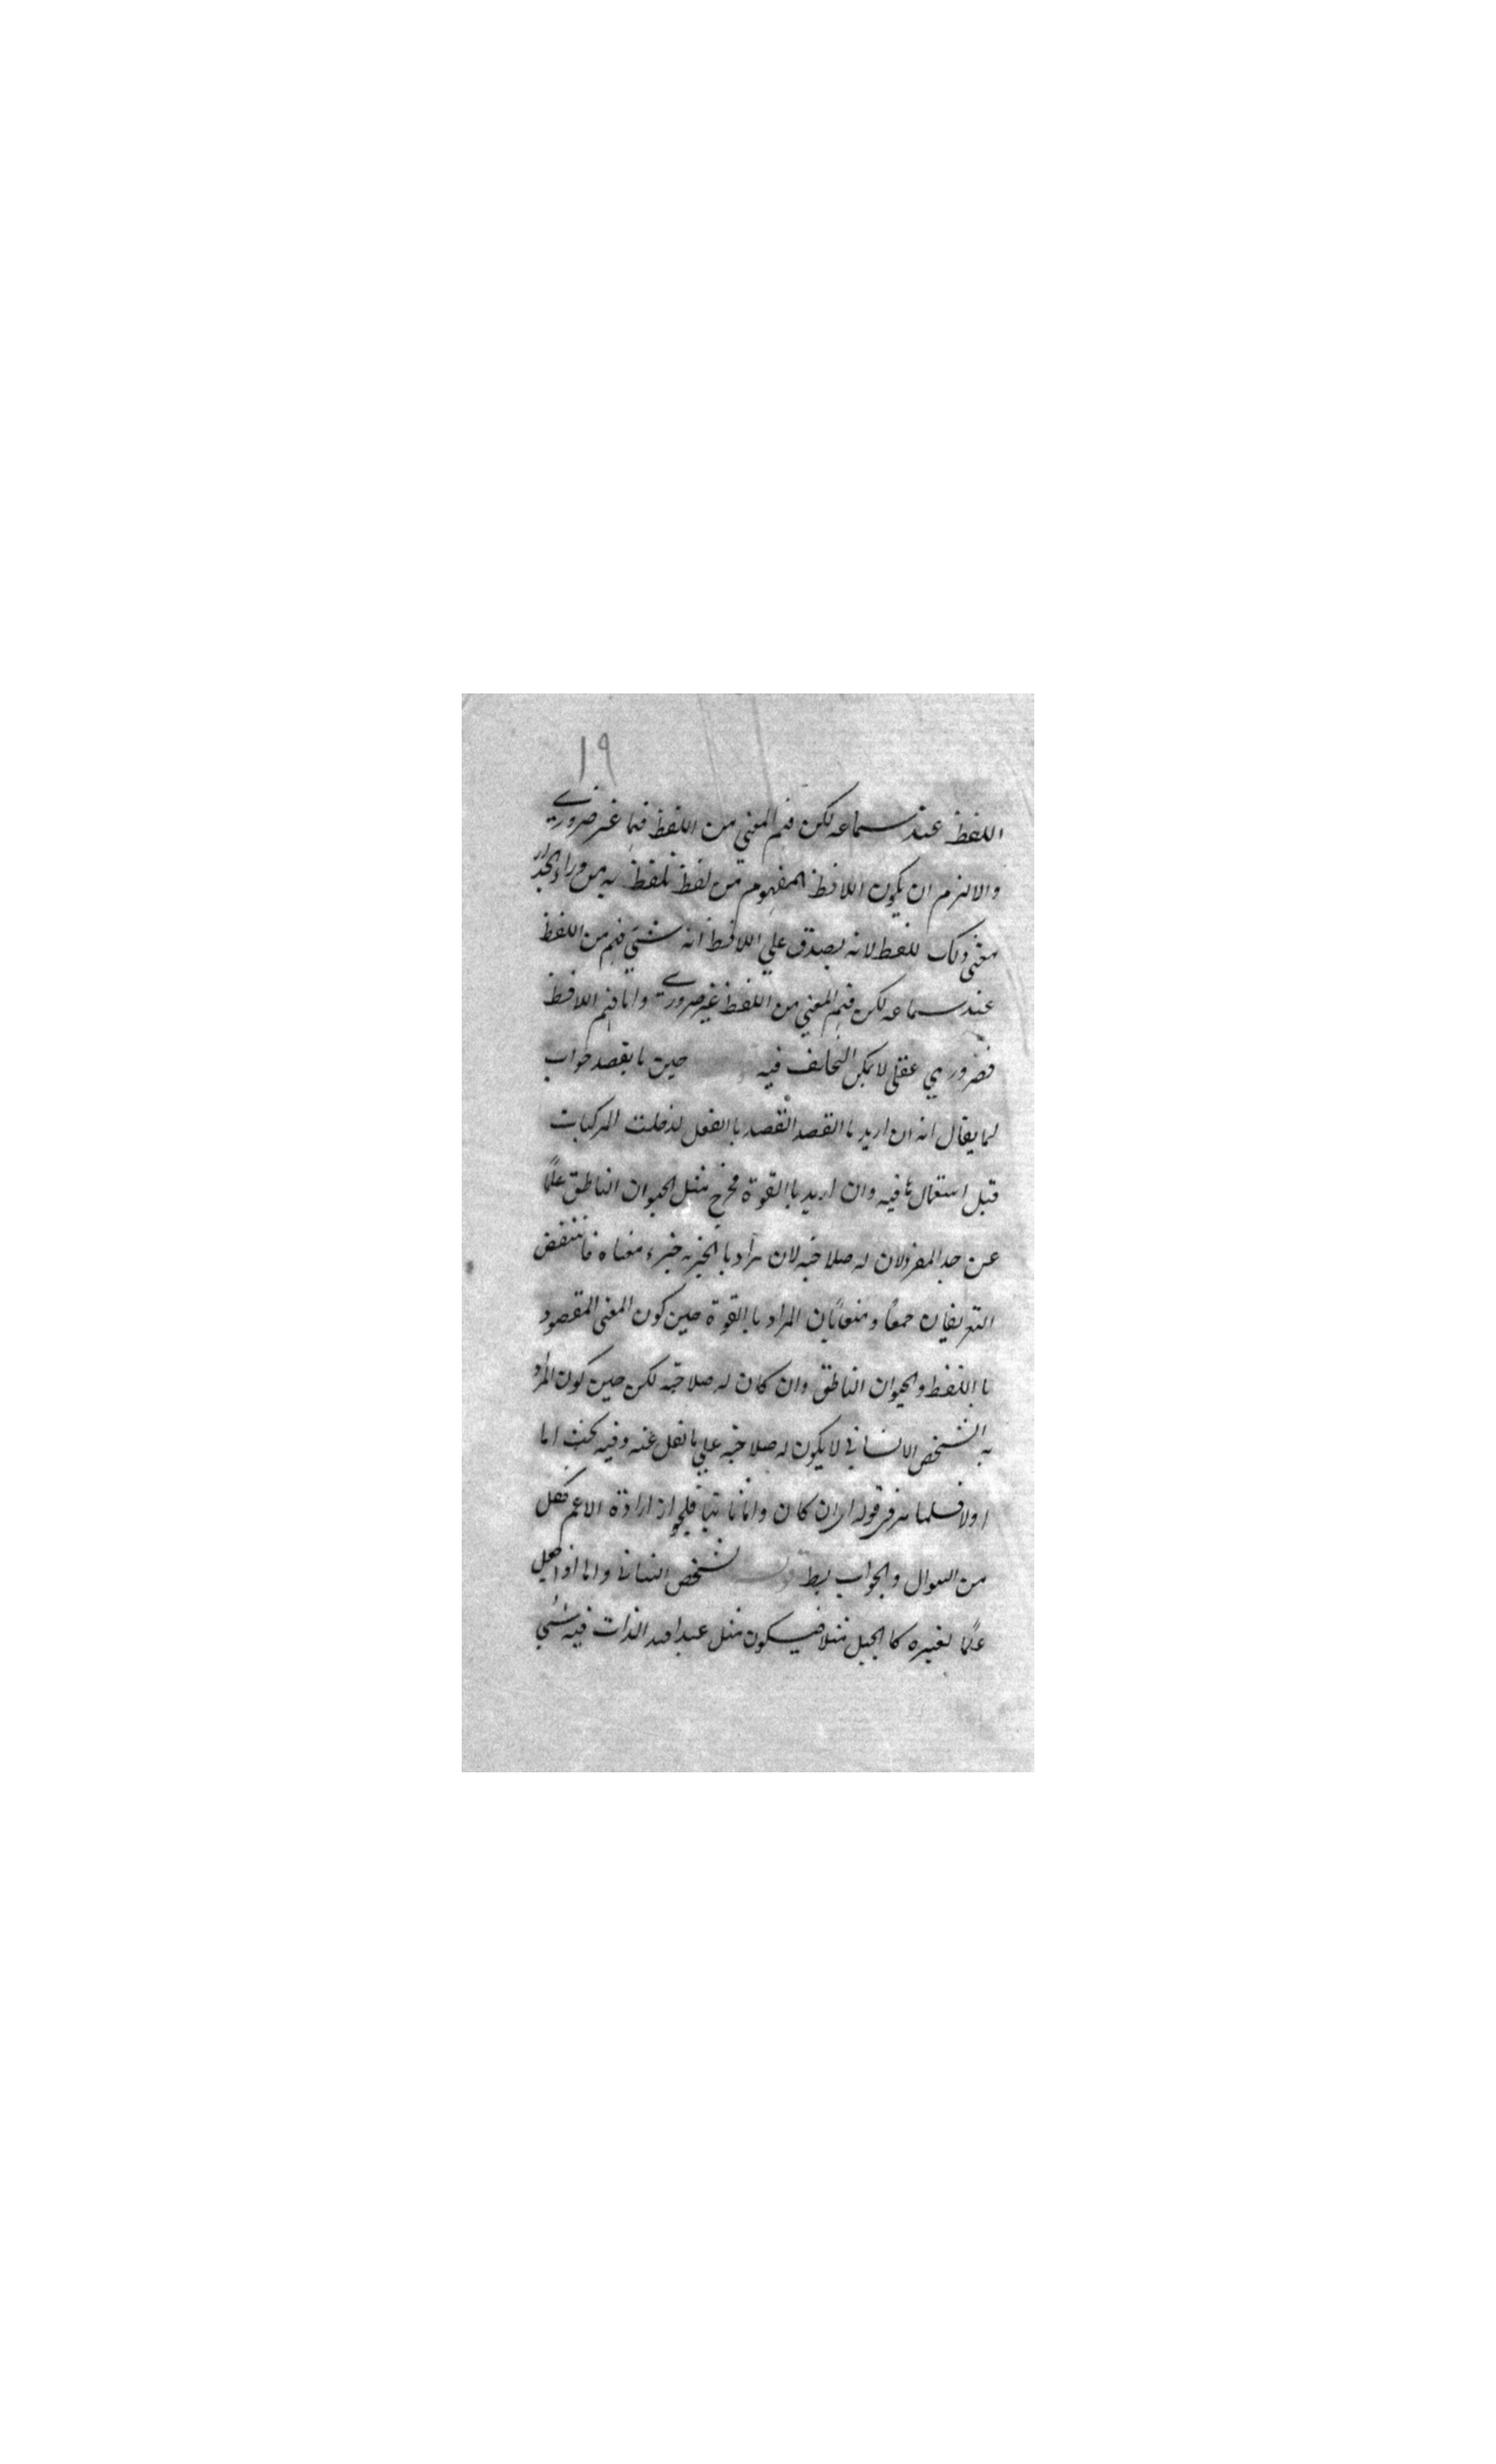 ١٩
اللفظ عند سماعه لكن فهم المعنى من اللفظ فيما غير ضروري
والا لزم ان يكون اللافظ المفهوم من لفظ تلفظ به من وراء الجدار
معنى ذلك اللفظ لانه يصدق على اللافظ انه شيء فهم من اللفظ
عند سماعه لكن فهم المعنى من اللفظ غير ضروري واما فهم اللافظ
فضروري عقلي لا يمكن التخلف فيه حين ما يقصد جواب
لما يقال انه ان اريد بالقصد القصد بالفعل لدخلت المركبات
قبل استعمالها فيه وان اريد باالقوة فخرج مثل الحيوان الناطق علمًا
عن حد المفرد لان له صلاحية لان يراد بالجزء جزء معناه فانتقض
التعريفان جمعًا ومنعًا بان المراد باالقوة حين كون المعنى المقصود
باللفظ والحيوان الناطق وان كان له صلاحية لكن حين كون المراد
به الشخص الانساني لا يكون له صلاحية على ما نقل عنه وفيه بحث اما
اولا فلما مر في قوله ان كان واما ثانيا فلجواز ارادة الاعم فقل
من السوال والجواب شخص انساني واما اذا جعل
علمًا لغيره كالجبل مثلا فيكون مثل عبد الله الذات فيه شيء